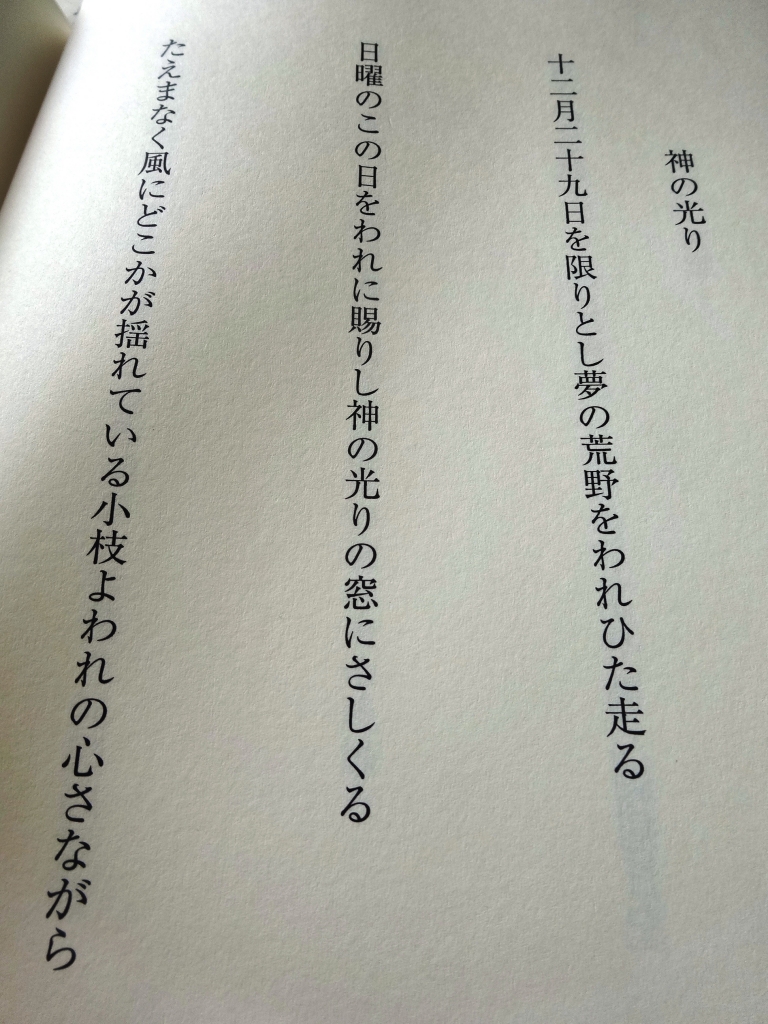 神の光り
十二月二十九日を限りとし夢の荒野をわれひた走る
日曜のこの日をわれに賜りし神の光りの窓にさしくる
たえまなく風にどこかが揺れている小枝よわれの心さながら